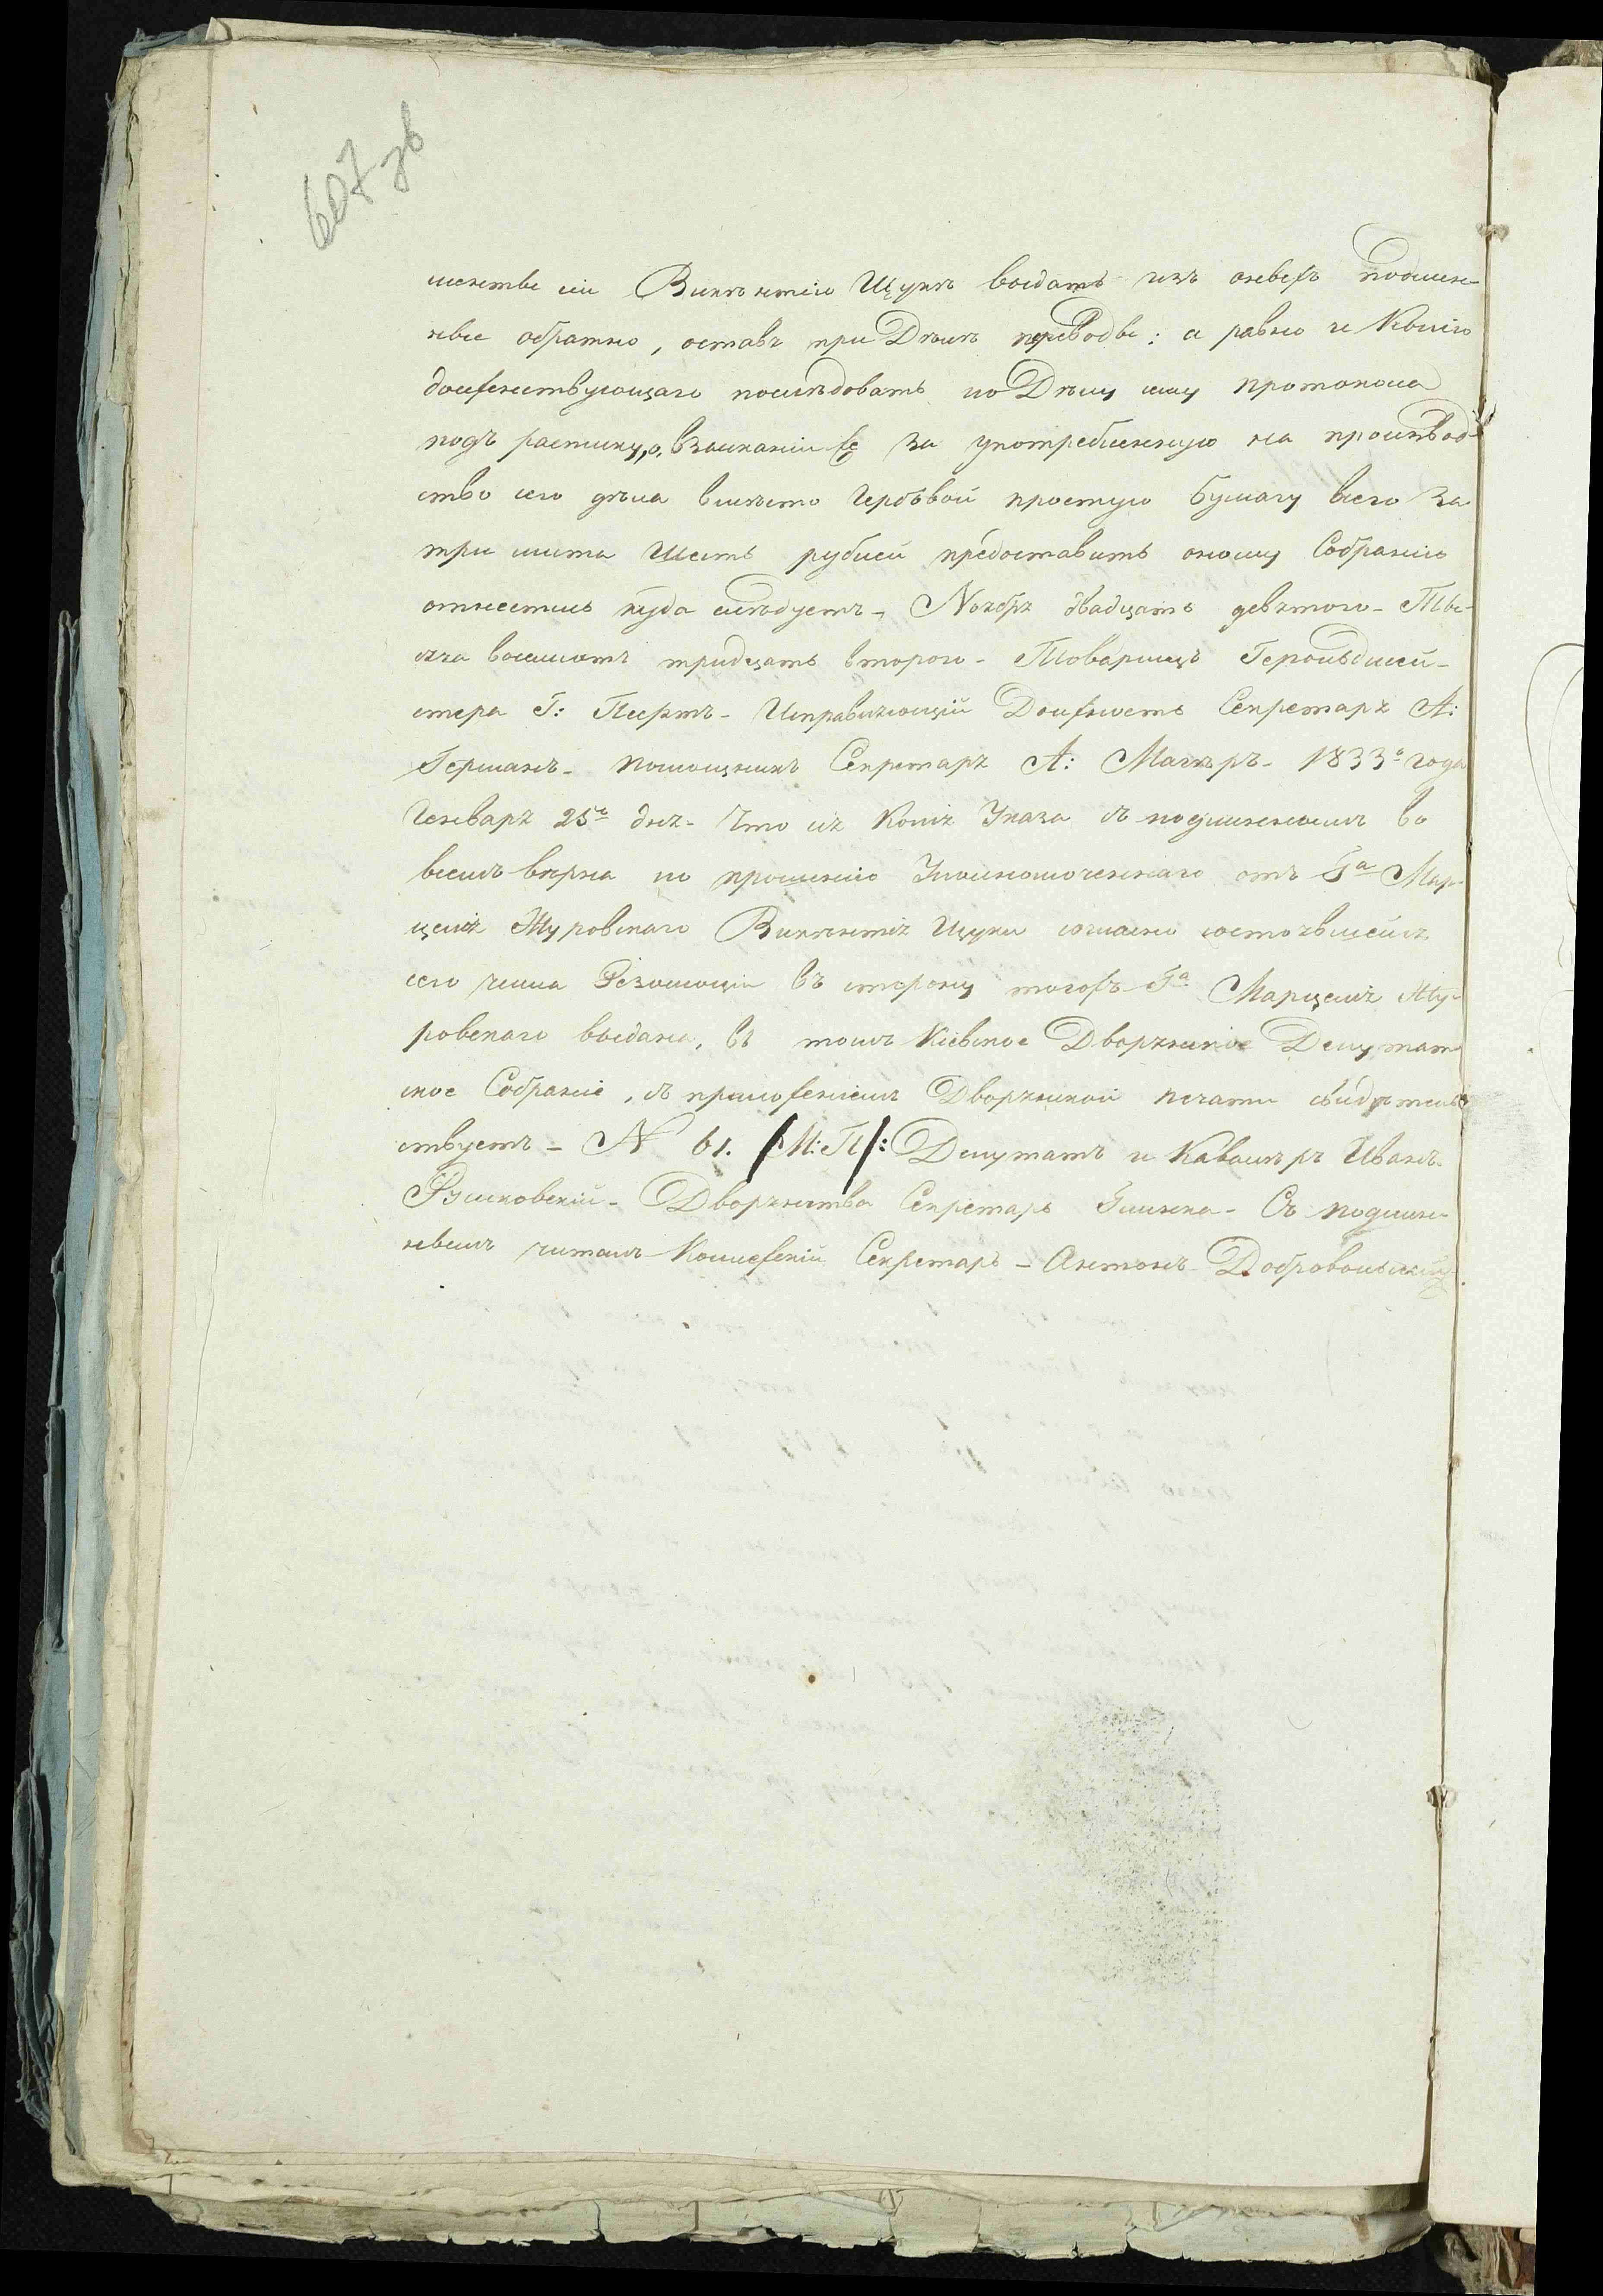 607 зв
шенстве сіи Викѣнтію Щукѣ выдать изъ оныхъ подлин-
ные обратно, оставя при Дѣлѣ переводы: а равно и Копію
долженствующаго послѣдовать по Дѣлу ему протокола
подъ расписку, о взысканіи же за употребленную на производ-
ство сего дѣла вмѣсто Гербовой простую бумагу всего за
три листа Шесть рублей предоставить оному Собранію
отнестись куда слѣдуетъ – Ноября двадцать девятого – Ты-
сяча восемьсотъ тридцать второго – Товарищъ Герольдмей-
стера Г: – Исправляющій Должность Секретаря А:
Германъ – помощникъ Секретаря А: – 1833º года
Генваря 25º дня – Что ся Копія Указа съ подлиннымъ во
всемъ вѣрна по прошенію Уполномоченнаго отъ Гª Мар-
целія Журовскаго Викѣнтія Щуки согласно состоявшейся
сего числа Резолюціи въ сторону тогожъ Гª Марцелія Жу-
ровскаго выдана, въ томъ Кіевское Дворянское Депутат
ское Собраніе, съ приложеніемъ Дворянской печати свидѣтель
ствуетъ – N 61. /М:П/: Депутатъ и Кавалеръ Иванъ
Рудковскій – Дворянства Секретарь Глинка – Съ подлин-
нымъ читалъ Коллежскій Секретарь – Антонъ Добровольскій.